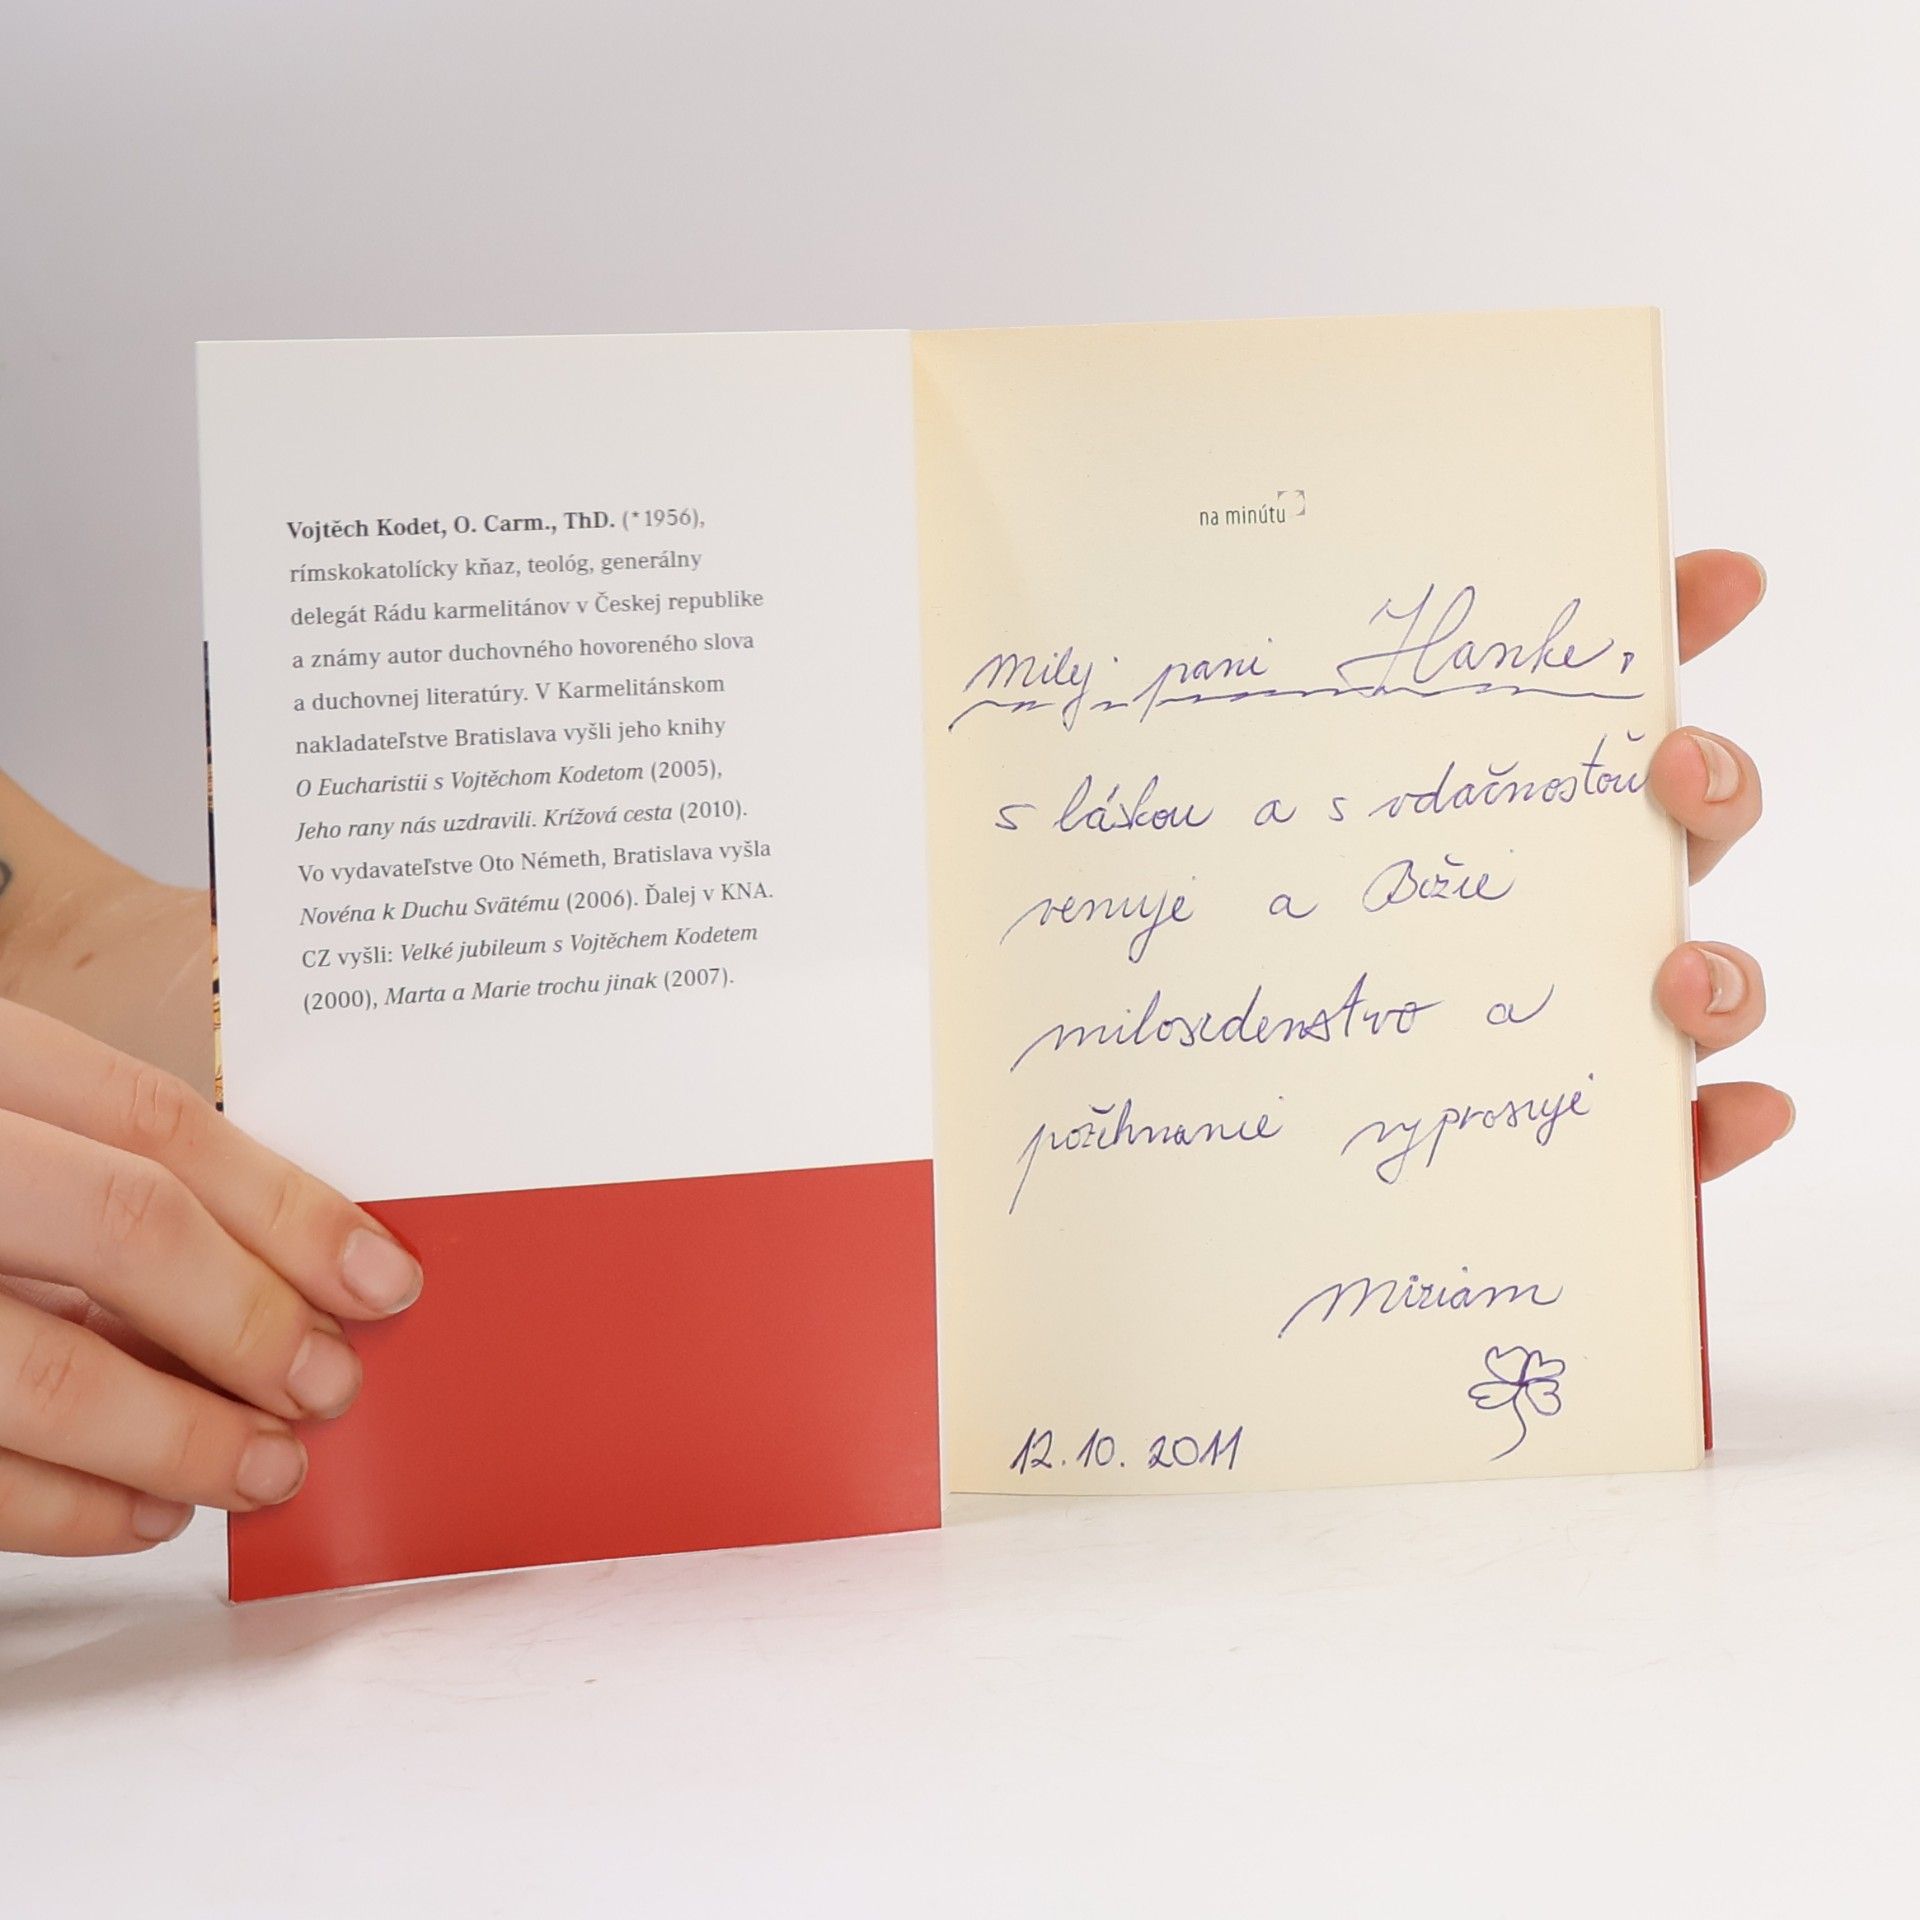 Vojtěch Kodet, O. Carm., ThD. (*1956),
rímskokatolícky kňaz, teológ, generálny
delegát Rádu karmelitánov v Českej republike
a známy autor duchovného hovoreného slova
a duchovnej literatúry. V Karmelitánskom
nakladateľstve Bratislava vyšli jeho knihy
O Eucharistii s Vojtěchom Kodetom (2005),
Jeho rany nás uzdravili. Krížová cesta (2010).
Vo vydavateľstve Oto Németh, Bratislava vyšla
Novéna k Duchu Svätému (2006). Ďalej v KNA.
CZ vyšli: Velké jubileum s Vojtěchem Kodetem
(2000), Marta a Marie trochu jinak (2007).
na minútu
Milej pani Hanke,
s láskou a s vďačnosťou
venuje a Božie
milosrdenstvo a
požehnanie vyprosuje
Miriam
12.10.2011